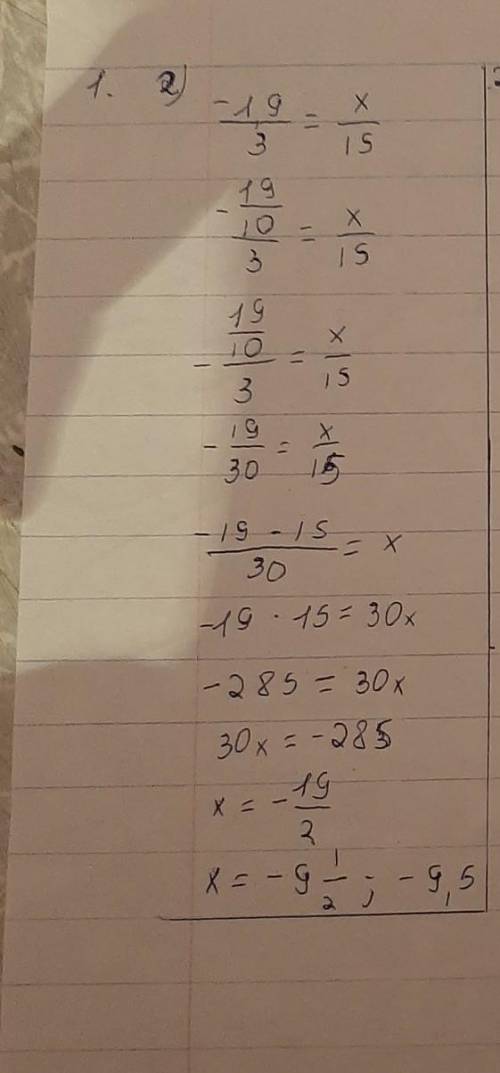 1. 2) -1,9/3 = x/15
-19/10/3 = x/15
-19/10/3 = x/15
-19/30 = x/15
-19 - 15/30 = x
-19 · 15 = 30x
-285 = 30x
30x = -285
x = -19/2
x = -9 1/2 ; -9,5